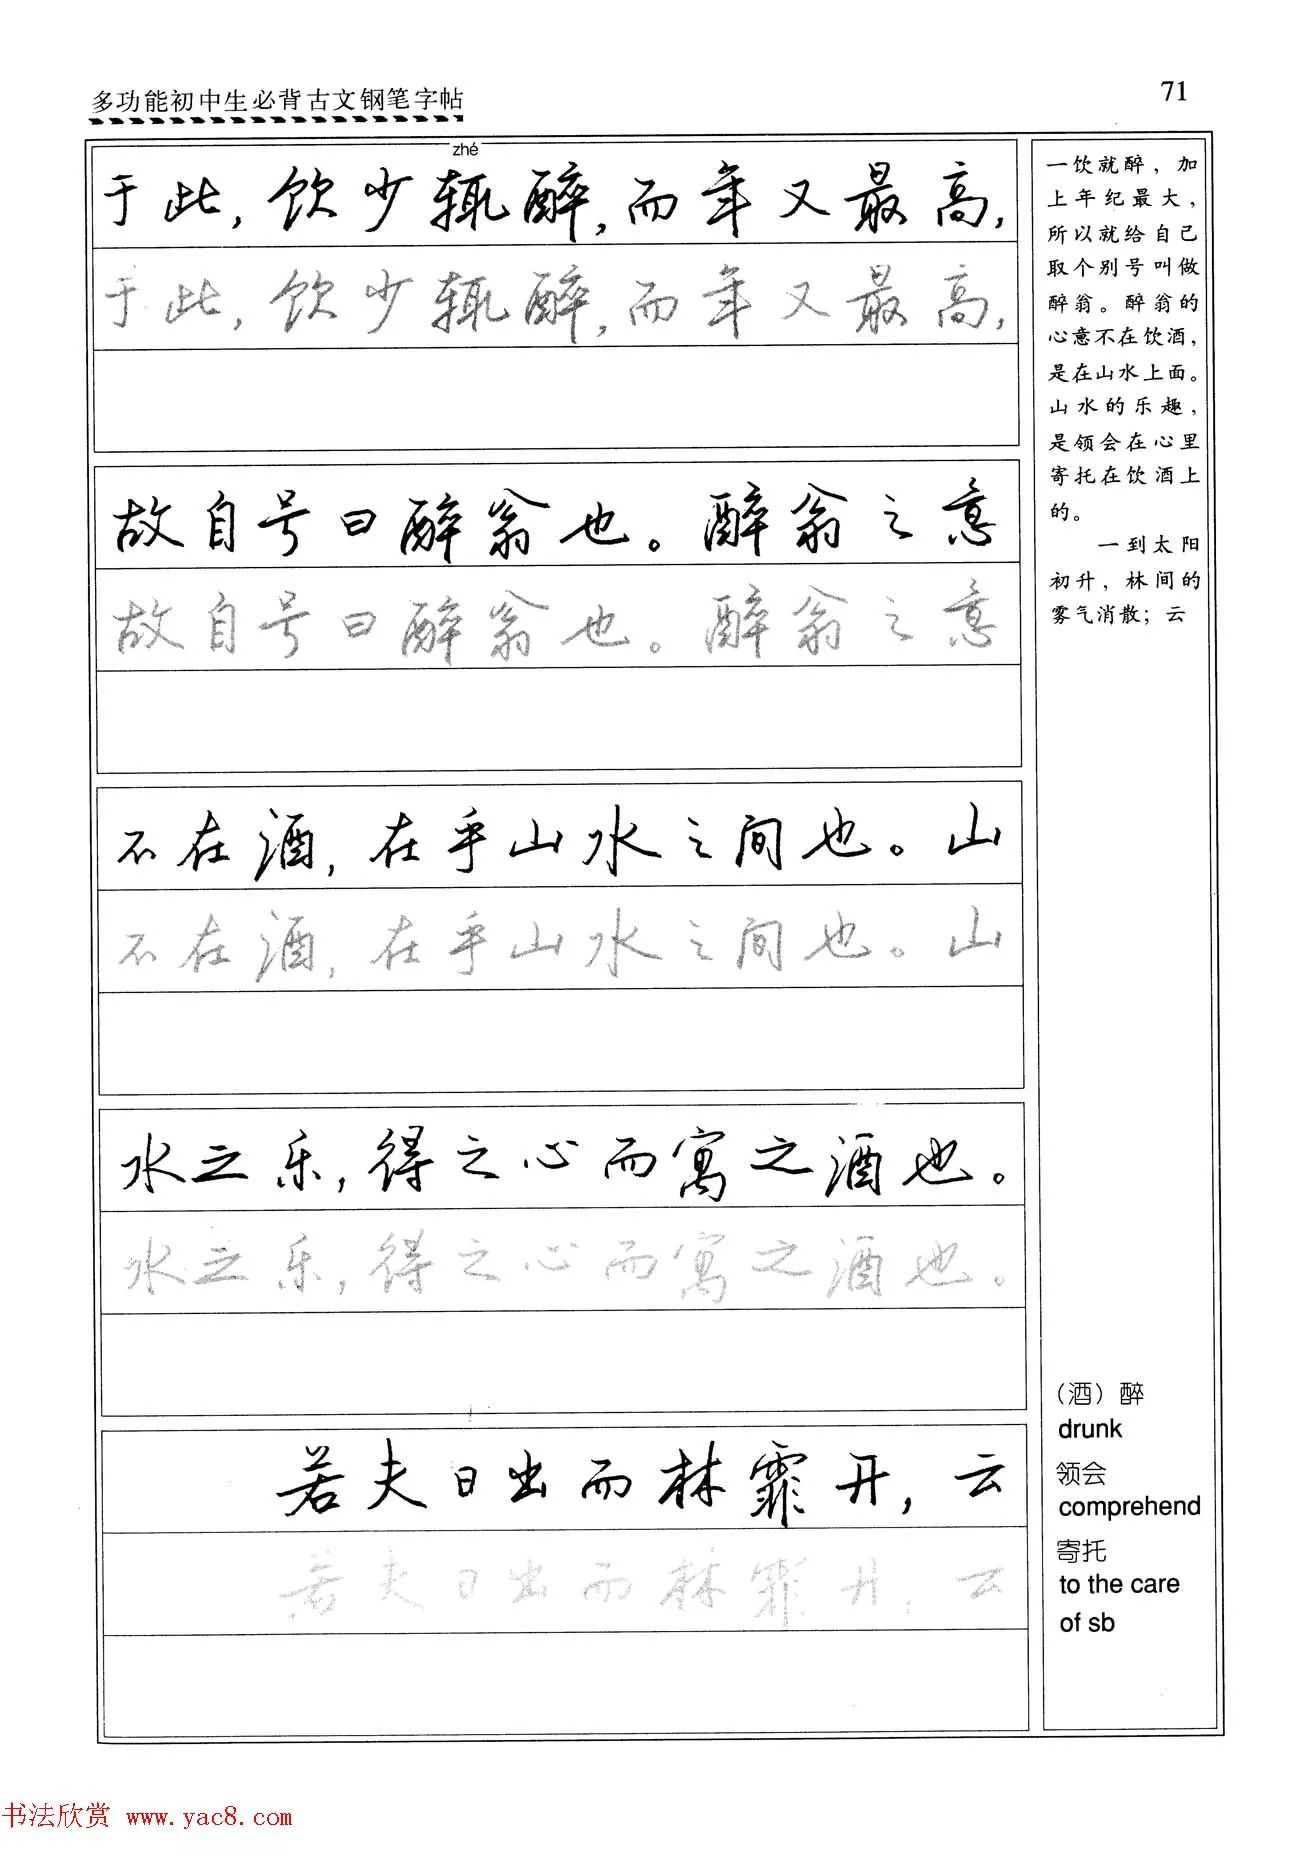 多功能初中生必背古文钢笔字帖
71
zhé
于此，饮少辄醉，而年又最高，
于此，饮少辄醉，而年又最高，
故自号曰醉翁也。醉翁之意
故自号曰醉翁也。醉翁之意
不在酒，在乎山水之间也。山
不在酒，在乎山水之间也。山
水之乐，得之心而寓之酒也。
水之乐，得之心而寓之酒也。
若夫日出而林霏开，云
若夫日出而林霏开，云
一饮就醉，加
上年纪最大，
所以就给自己
取个别号叫做
醉翁。醉翁的
心意不在饮酒，
是在山水上面。
山水的乐趣，
是领会在心里
寄托在饮酒上
的。
一到太阳
初升，林间的
雾气消散；云
（酒）醉
drunk
领会
comprehend
寄托
to the care
of sb
书法欣赏 www.yac8.com